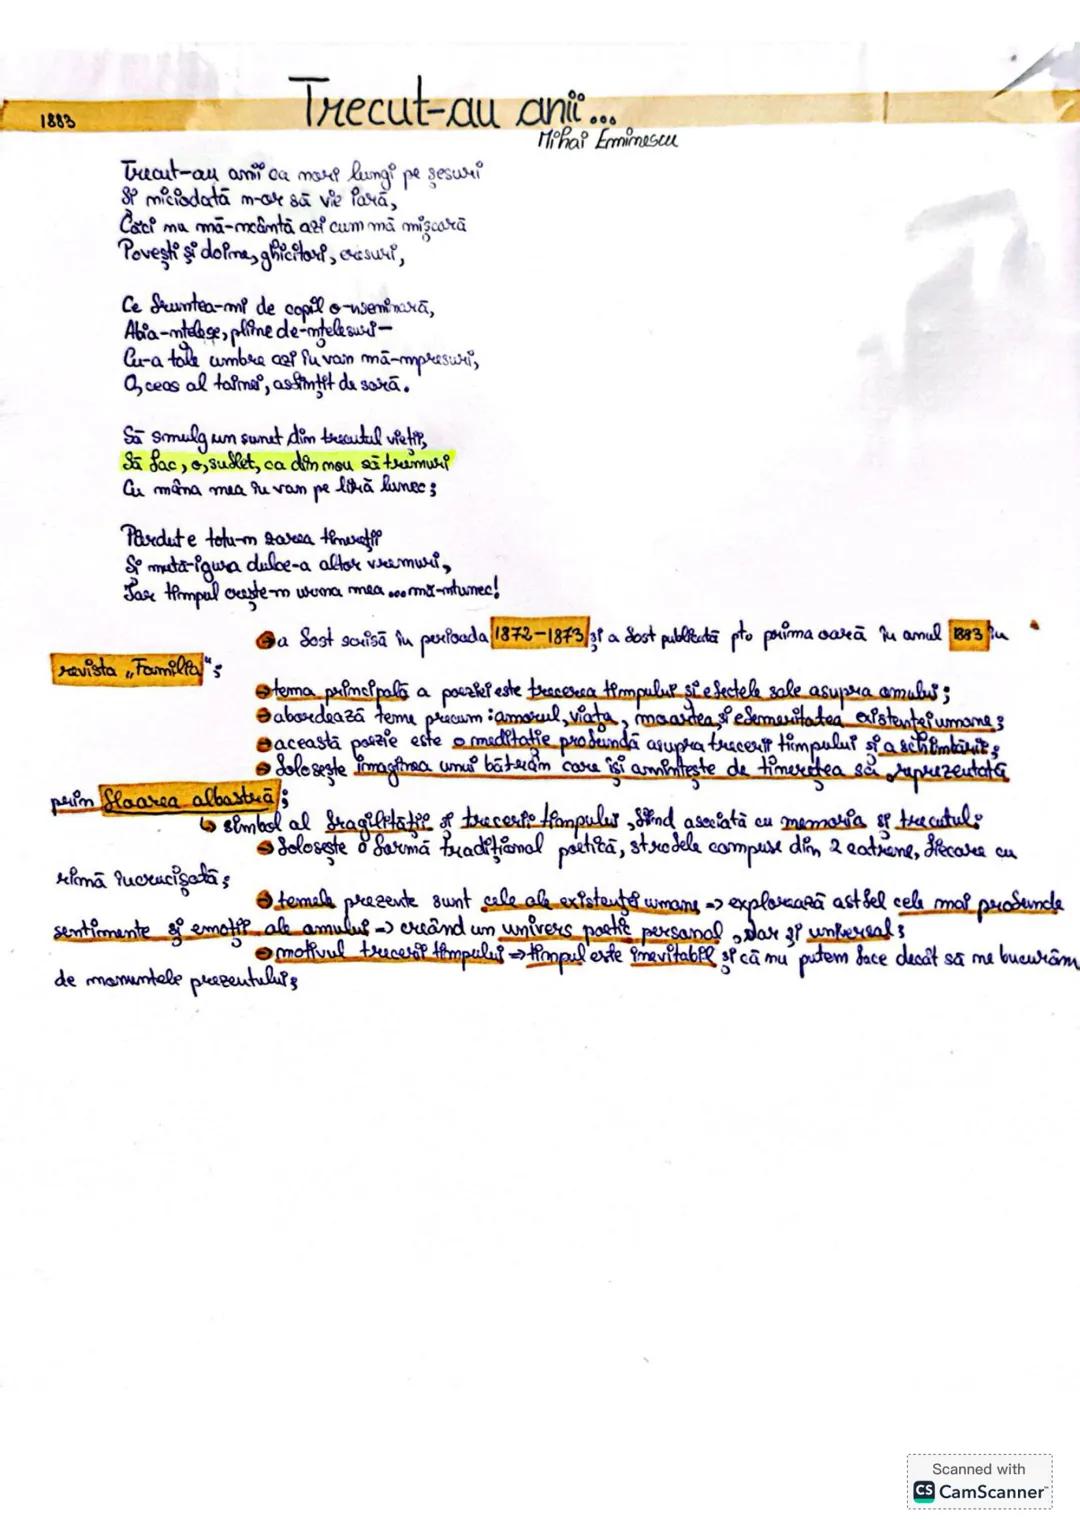 1883
Trecut-au anii...
Mihai Eminescu
Trecut-au anii ca nori lungi pe șesuri
Și niciodată n-or să vie iară,
Căci nu mă-ncântă azi cum mă mișcară
Povești și doine, ghicitori, eresuri,
Ce fruntea-mi de copil o-nseninară,
Abia-nțelese, pline de-nțelesuri-
Cu-a tale umbre azi în van mă-mpresuri,
O, ceas al tainei, asfințit de sară.
Să smulg un sunet din trecutul vieții,
Să fac, o, suflet, ca din nou să tremuri
Cu mâna mea în van pe liră lunec;
Pierdut e totu-n zarea tinereții
Și mută-i gura dulce-a altor vremuri,
Iar timpul crește-n urma mea...mă-ntunec!
a fost scrisă în perioada 1872-1873 și a fost publicată pto prima oară în anul 1883 în
revista „Familia";
tema principală a poeziei este trecerea timpului și efectele sale asupra omului;
abordează teme precum: amorul, viața, moartea, și efemeritatea existenței umane;
această poezie este o meditație profundă asupra trecerii timpului și a schimbării;
folosește imaginea unui bătrân care își amintește de tinerețea sa reprezentată
prin floarea albastră;
↳ simbol al fragilității și trecerii timpului, fiind asociată cu memoria și trecutul;
folosește o formă tradițional poetică, strofele compuse din 2 catrene, fiecare cu
rimă încrucișată;
temele prezente sunt cele ale existenței umane => explorează astfel cele mai profunde
sentimente și emoții ale omului => creând un univers poetic personal, dar și universal;
motivul trecerii timpului => timpul este inevitabil și că nu putem face decât să ne bucurăm
de momentele prezentului;
Scanned with
CS CamScanner